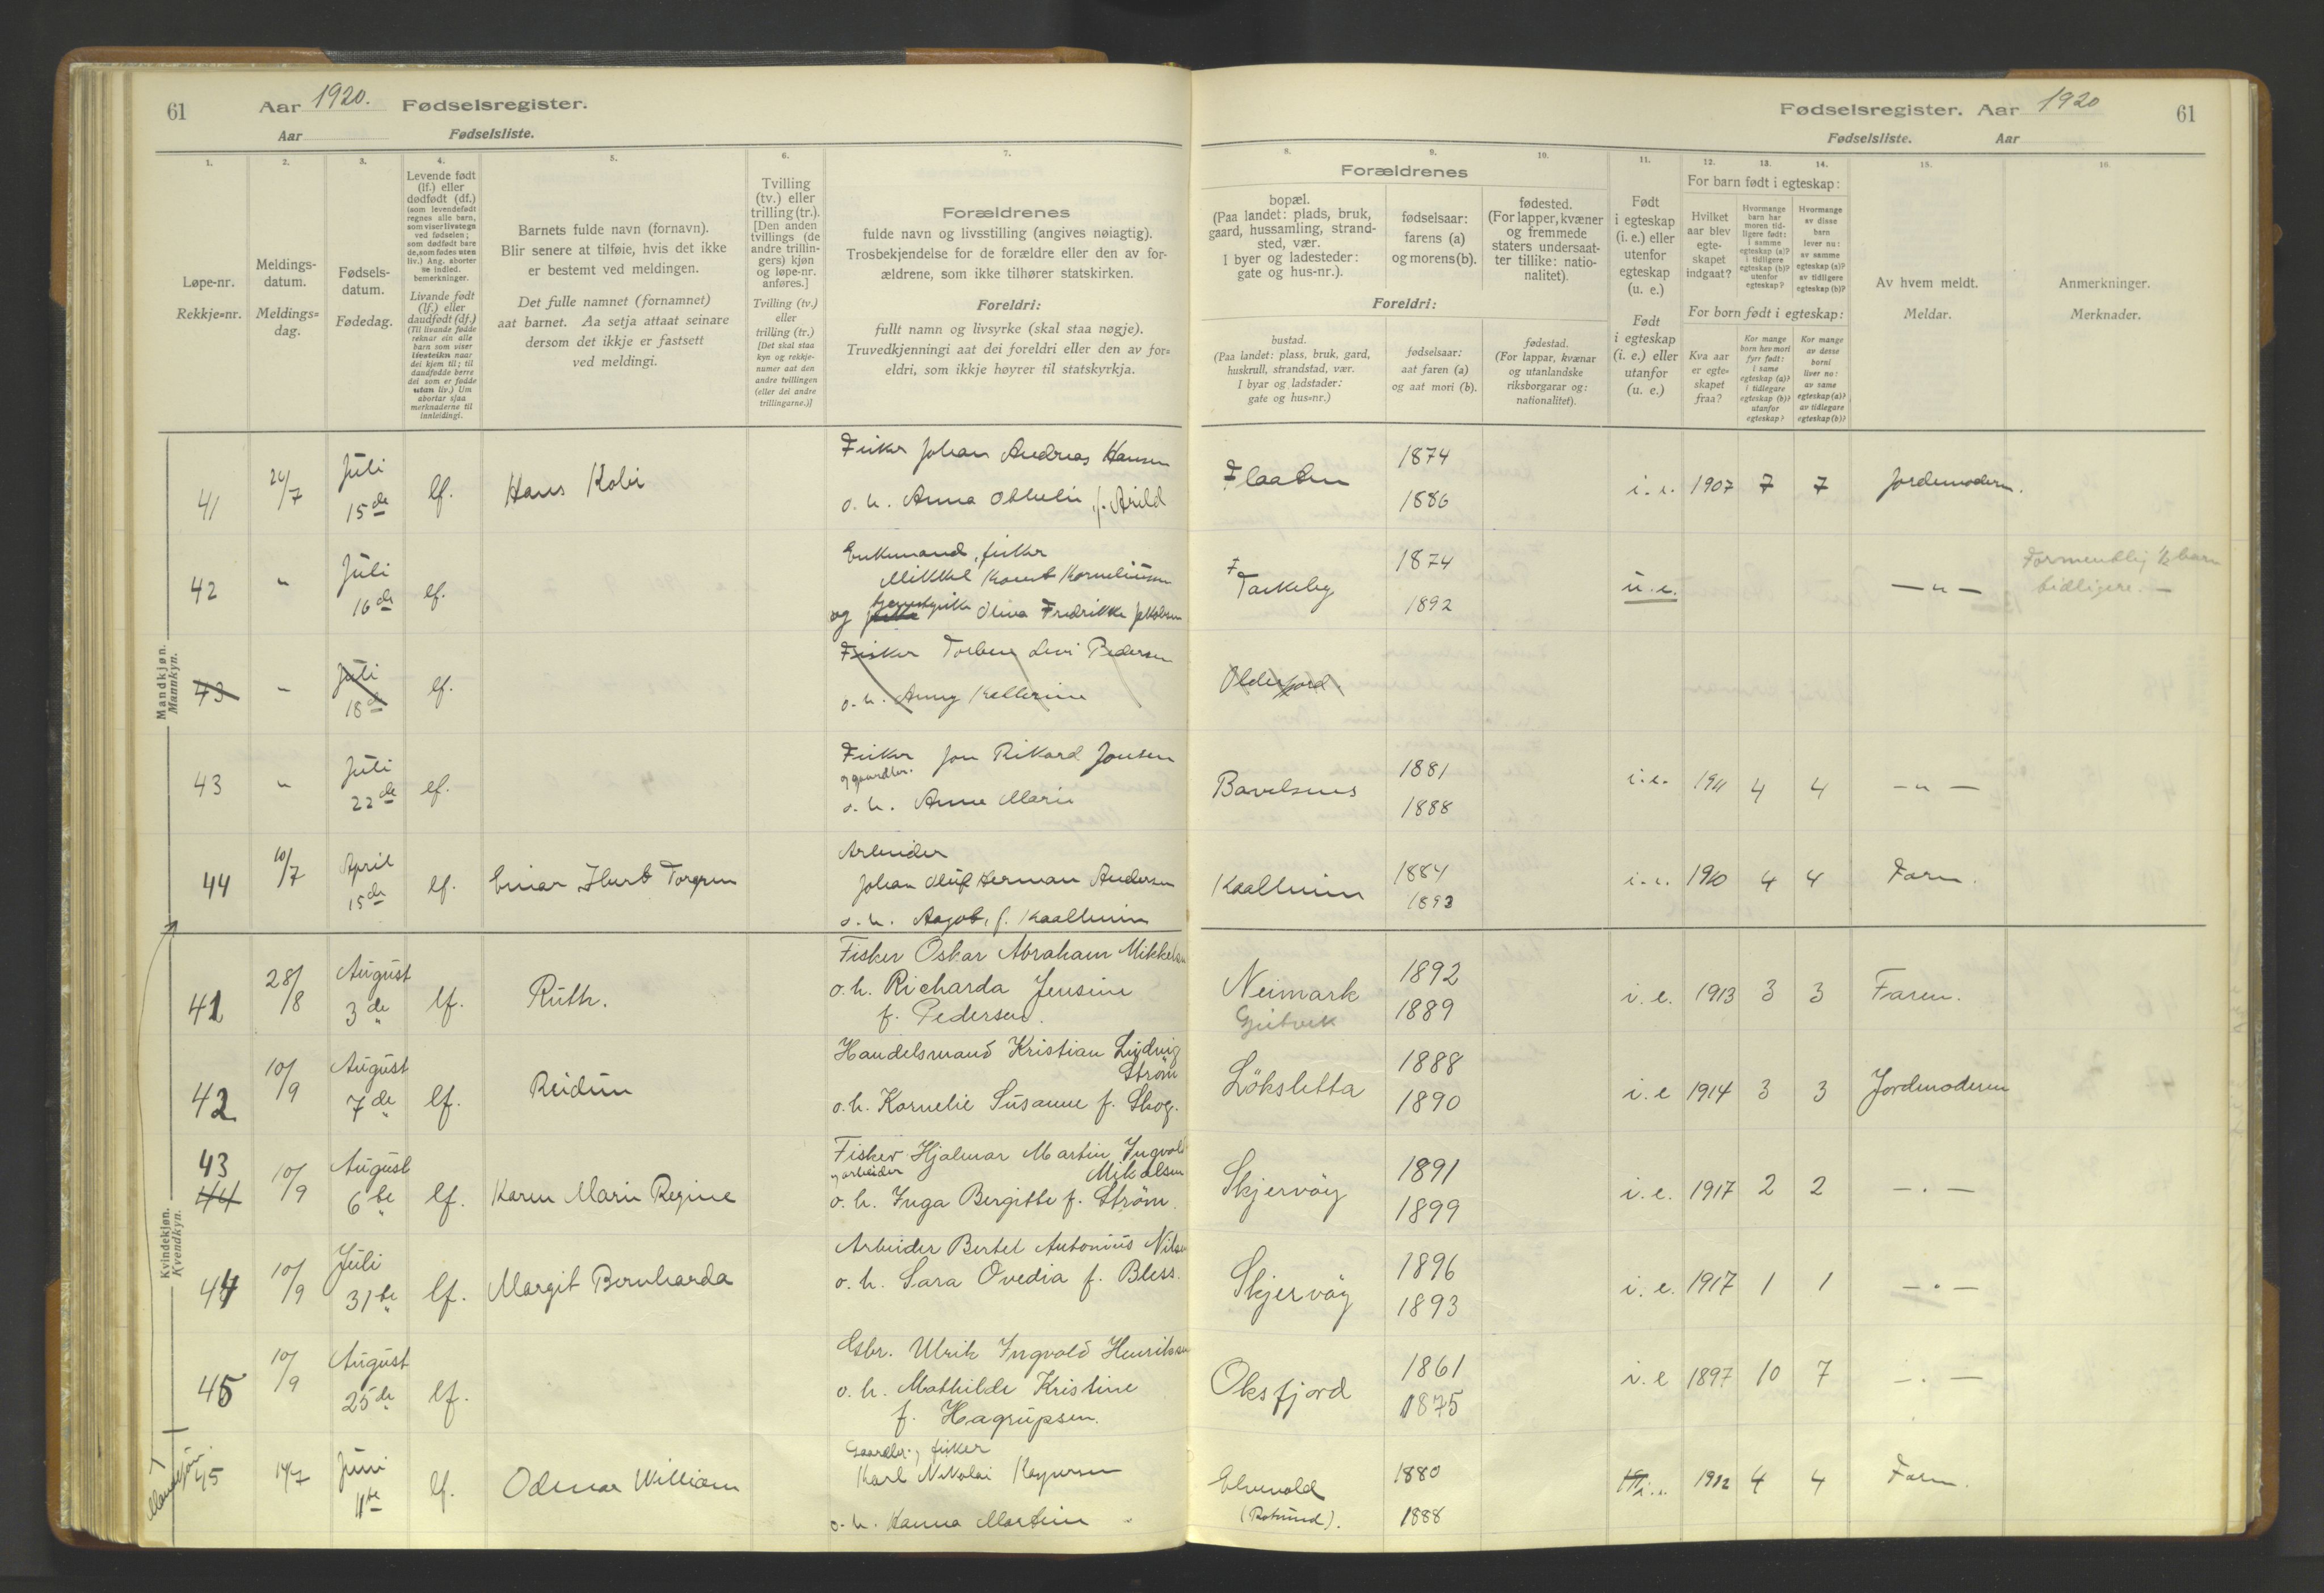 61 Aar 1920. Fødselsregister.
Aar Fødselsliste.
1. 2. 3. 4. 5. 6. 7.
Løpe-nr.
Rekkje=nr.
Meldings-
datum.
Meldings=
dag.
Fødsels-
datum.
Fødedag.
Levende født
(lf.) eller
dødfødt (df.)
(som levendefødt
regnes alle barn,
som viser livstegn
ved fødselen;
som dødfødt bare
de, som fødes uten
liv.) Ang. aborter
se indled.
bemerkninger.
Livande født
(lf.) eller
daudfødt (df.)
(Til livande fødde
reknar ein alle
barn som viser
livsteikn naar
dei kjem til; til
daudfødde berre
dei som er fødde
utan liv.) Um
abortar sjaa
merknaderne til
innleidingi.
Barnets fulde navn (fornavn).
Blir senere at tilføie, hvis det ikke
er bestemt ved meldingen.
Det fulle namnet (fornamnet)
aat barnet. Aa setja attaat seinare
dersom det ikkje er fastsett
ved meldingi.
Tvilling
(tv.) eller
trilling (tr.).
[Den anden
tvillings (de
andre trillin-
gers) kjøn
og løpe-nr.
anføres.]
Tvilling (tv.)
eller
trilling (tr.)
[Det skal staa
kyn og rekkje-
numer aat den
andre tvillingen
(eller dei andre
trillingarne.)]
Forældrenes
fulde navn og livsstilling (angives nøiagtig).
Trosbekjendelse for de forældre eller den av for-
ældrene, som ikke tilhører statskirken.
Foreldri:
fullt namn og livsyrke (skal staa nøgje).
Truvedkjenningi aat dei foreldri eller den av for=
eldri, som ikkje høyrer til statskyrkja.
Mandkjøn.
Mannkyn.
41 Juli 15de lf. Hans Kolbi Fisker Johan Andreas Hansen
o. h. Anna f. Arild
42 " Juli 16de lf. Enkemand, fisker
Mikkel Kornt Korneliussen
og Oliva Fredrikke Jakobsen
43 " Juli 18de lf. Fisker Torberg Levi Pedersen
o. h. Anny Kathrine
43 " Juli 22de lf. Fisker Jon Rikard Jensen
og gaardbr.
o. h. Anne Marie
44 10/7 April 15de lf. Einar Torgren Arbeider
Johan Oluf Herman Andersen
o. h. Aagot, f. Kaalheim
Kvindekjøn.
Kvendkyn.
41 28/8 August 3de lf. Ruth. Fisker Oskar Abraham Mikkelsen
o. h. Richarda Jensine
f. Pedersen.
42 10/9 August 7de lf. Reidun Handelsmand Kristian Ludvig
Strøm
o. h. Kornelie Susanne f. Skog.
43
44 10/9 August 6te lf. Karen Marie Regine Fisker Hjalmar Martin Ingvald
og arbeider Mikalsen
o. h. Inga Bergitte f. Strøm.
44 10/9 Juli 31te lf. Margit Bernharda Arbeider Bertel Antonius Nilsen
o. h. Sara Ovedia f. Bless.
45 10/9 August 25de lf. Gbr. Ulrik Ingvald Henriksen
o. h. Mathilde Kristine
f. Hagrupsen.
Mandkjøn
45 14/7 Juni 11te lf. Odmar William Gaardbr., fisker
Karl Nikolai Kaspersen
o. h. Hanna Martine
Fødselsregister. Aar 1920 61
Fødselsliste. Aar
8. 9. 10. 11. 12. 13. 14. 15. 16.
Forældrenes
bopæl.
(Paa landet: plads, bruk,
gaard, hussamling, strand-
sted, vær.
I byer og ladesteder:
gate og hus-nr.).
fødselsaar:
farens (a)
og morens (b).
fødested.
(For lapper, kvæner
og fremmede
staters undersaat-
ter tillike: natio-
nalitet).
Foreldri:
bustad.
(Paa landet: plass, bruk, gard,
huskrull, strandstad, vær.
I byar og ladstader:
gate og hus=nr.)
fødselsaar:
aat faren (a)
og aat mori (b).
fødestad.
(For lappar, kvænar
og utanlandske
riksborgarar og:
nationalitet).
Født
i egteskap
(i. e.) eller
utenfor
egteskap
(u. e.)
Født
i egteskap
(i. e.) eller
utanfor
(u. e.)
For barn født i egteskap:
Hvilket
aar blev
egte-
skapet
indgaat?
Hvormange
barn har
moren tid-
ligere født:
i samme
egteskap (a)?
i tidligere
egteskap (b)?
utenfor
egteskap?
Hvormange
av disse
barn
lever nu:
av samme
egteskap (a)?
av tidligere
egteskap (b)?
For born født i egteskap:
Kva aar
er egte=
skapet
fraa?
Kor mange
born hev mori
fyrr født:
i same
egteskap (a)?
i tidlegare
egteskap (b)?
utanfor
egteskap?
Kor mange
av desse
borni
liver no:
av same
egteskap (a)?
av tidlegare
egteskap (b)?
Av hvem meldt.
Meldar.
Anmerkninger.
Merknader.
Flaaten 1874 1886 i. e. 1907 7 7 Jordemoderen.
Taskeby 1874 1892 u. e. — " — Formentlig 1/2 barn
tidligere. —
Olderfjord.
Bavelsnes 1881 1888 i. e. 1911 4 4 — " —
Kaalheim 1884 1893 i. e. 1910 4 4 Faren.
Neimark 1892 1889 i. e. 1913 3 3 Faren.
Løksletta 1888 1890 i. e 1914 3 3 Jordemoderen
Skjervøy 1891 1899 i. e. 1917 2 2 — . —
Skjervøy 1896 1893 i. e. 1917 1 1 — . —
Oksfjord 1861 1875 i. e 1897 10 7 — . —
Elvevold
(Rotsund). 1880 1888 i. e. 1912 4 4 Faren.